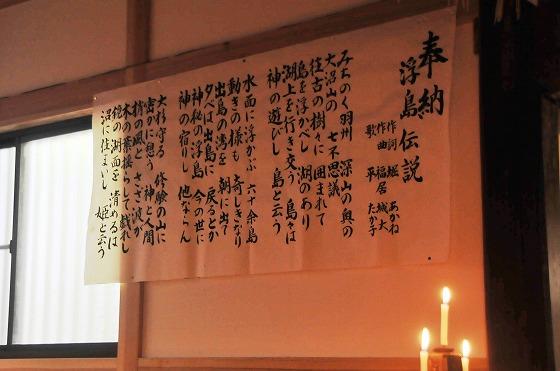 奉納
浮島伝説
作詞 堀 あかね
作曲 福居 城大
歌 平 たか子
みちのく羽州 深山の奥の
大沼山の 七不思議
往古の樹々に 囲まれて
島を浮かべし 湖のあり
湖上を行き交う 島々は
神の遊びし 島と云う
水面に浮かぶ 六十余島
動きの様も 奇しきなり
出島の湾を 朝に出て
夕べは出島に 戻るとか
神秘の浮島 今の世に
神の宿りし 他ならん
大杉守る 修験の山に
密かに想う 神と人間
梢の風と さざ波が
木の葉揺らして 戯れし
鏡の湖面を 清めるは
沼に住まいし 姫と云う